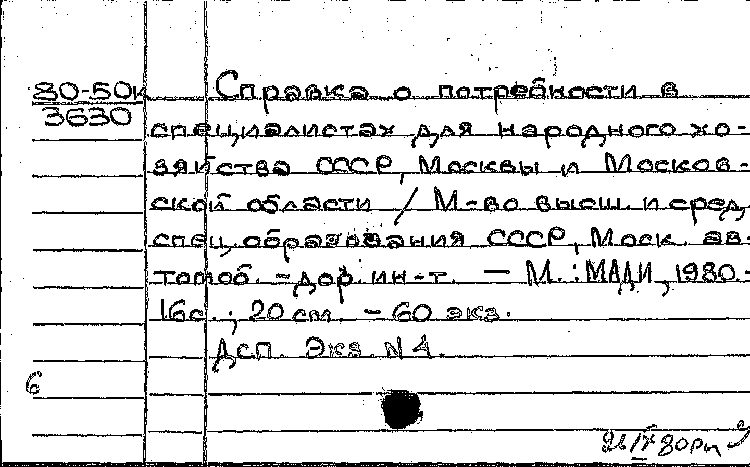 80-50к
3630
Справка о потребности в
специалистах для народного хо-
зяйства СССР, Москвы и Москов-
ской области / М-во высш. и сред.
спец. образования СССР, Моск. ав-
томоб.-дор. ин-т. — М.: МАДИ, 1980.-
16с.; 20 см. - 60 экз.
ДСП. Экз. N 4.
6